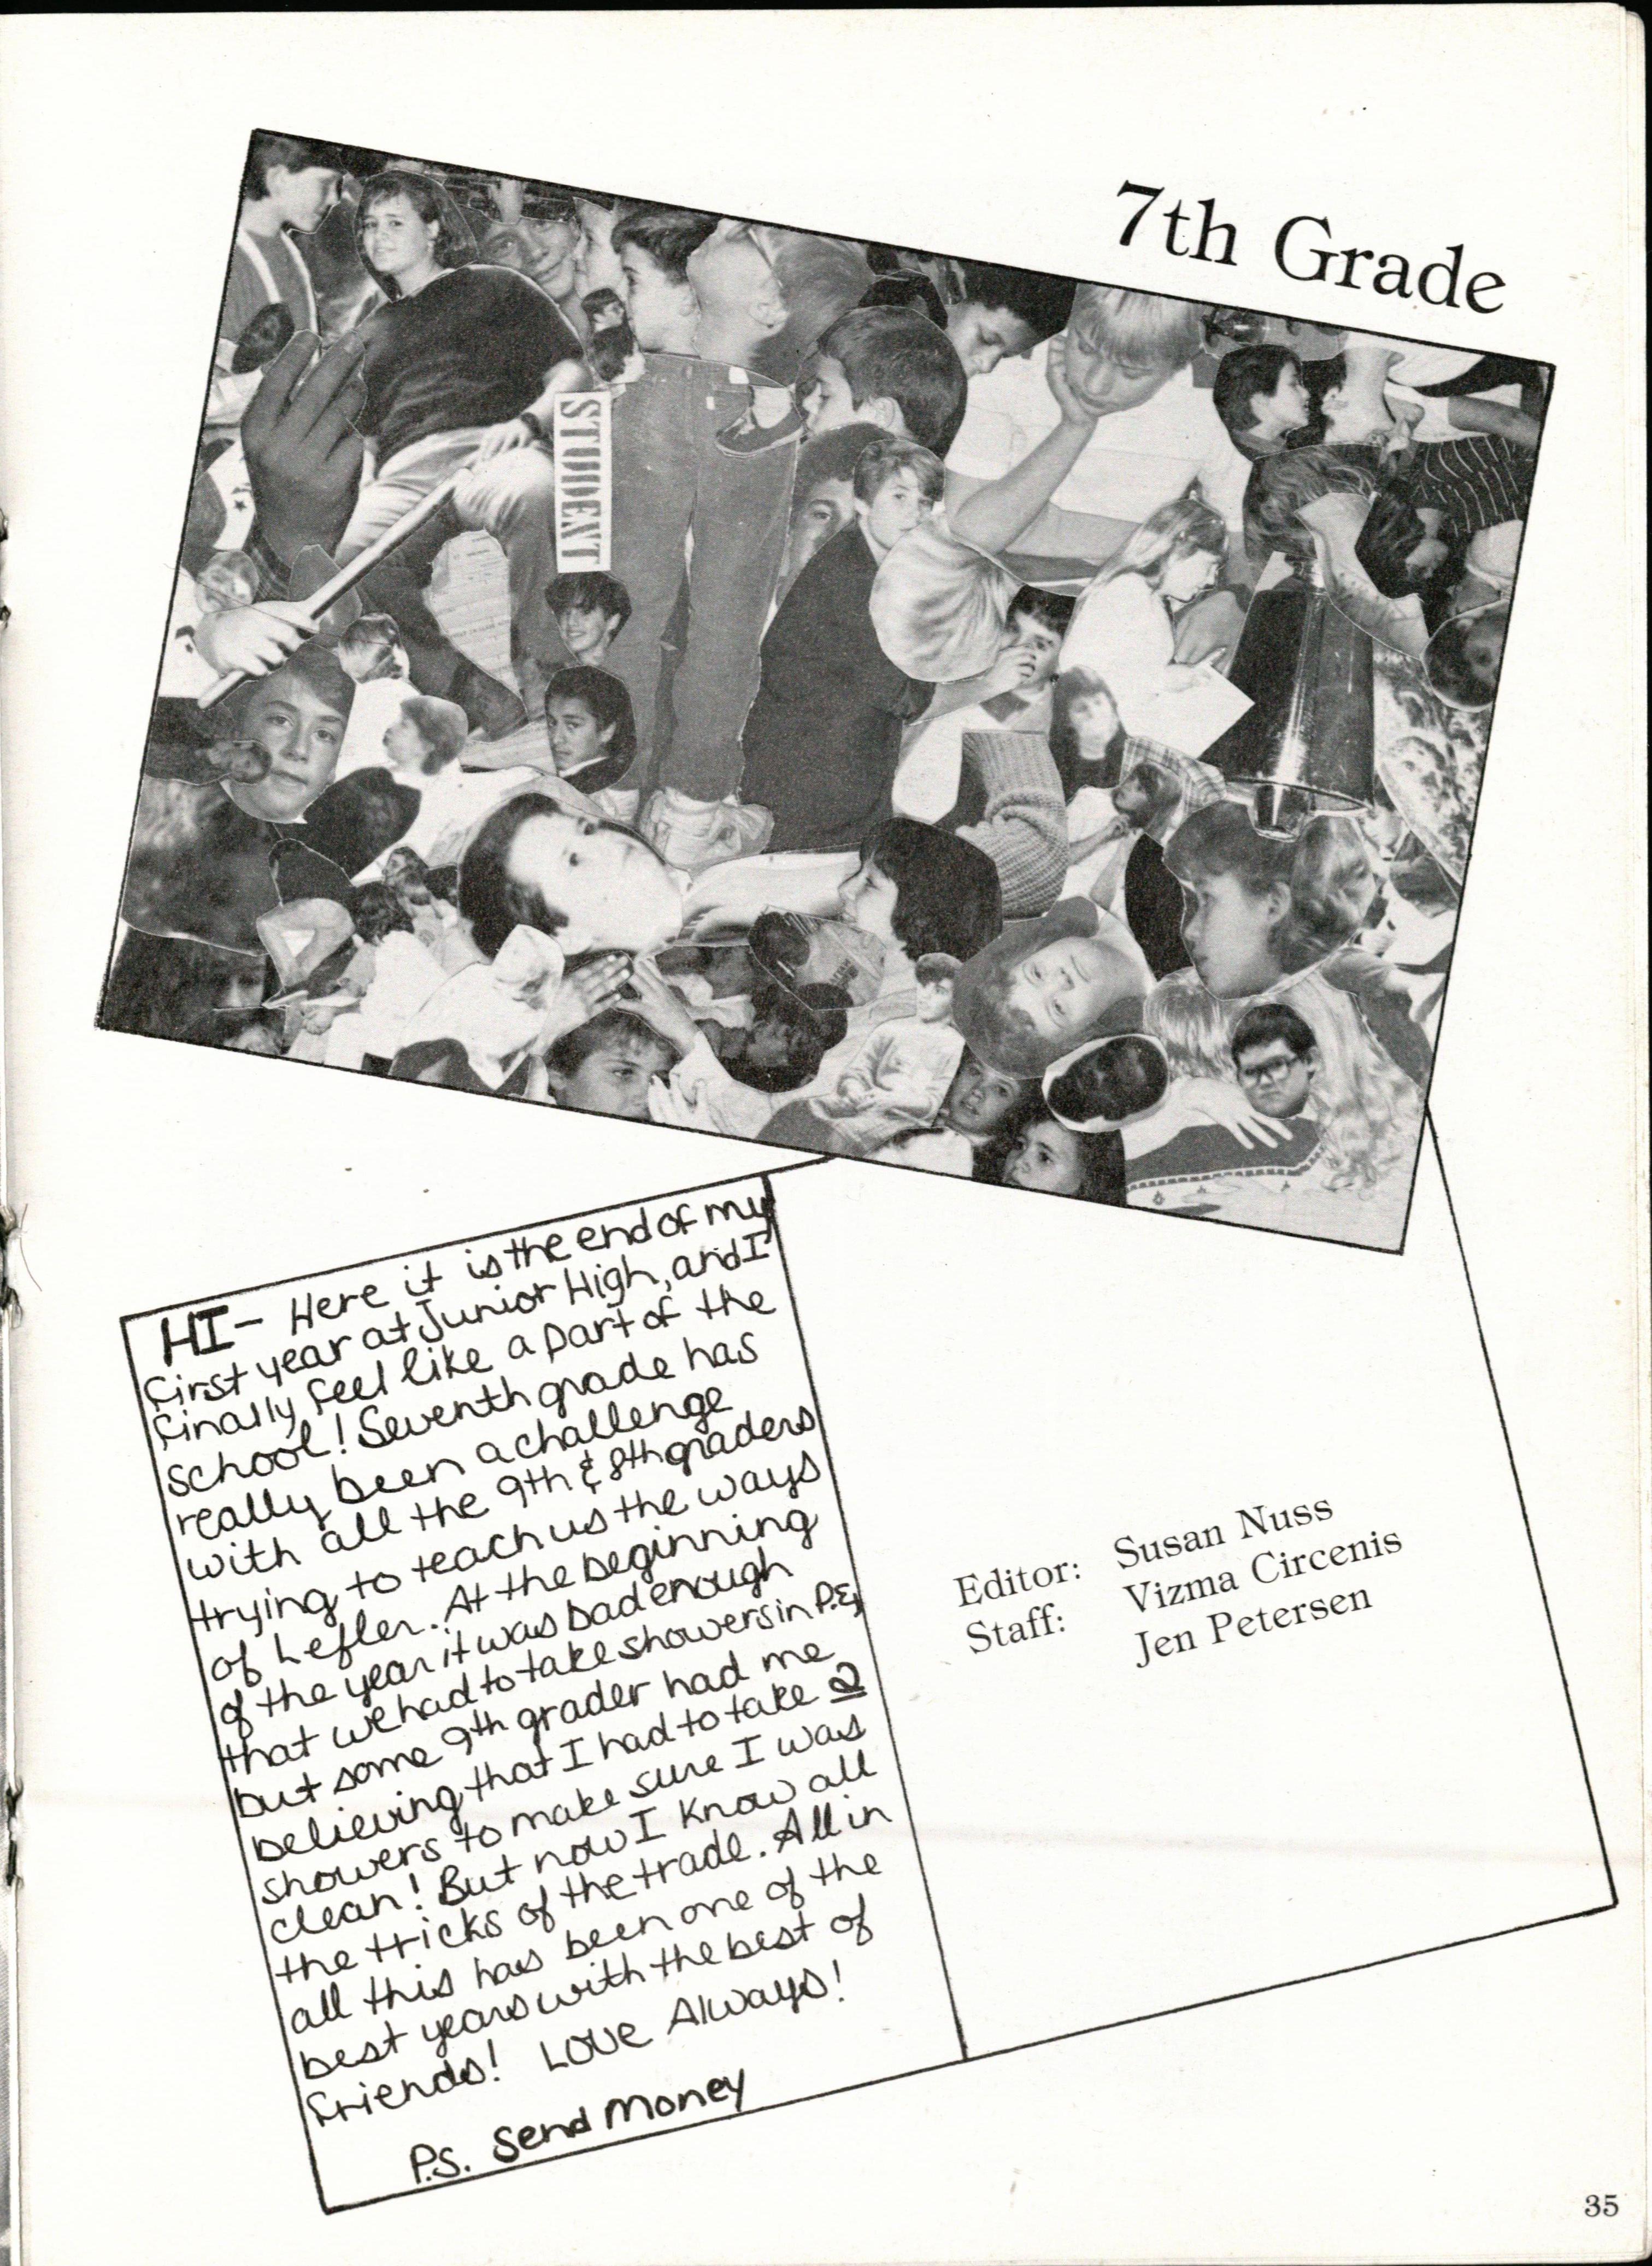 7th Grade
STUDENT
HI- Here it is the end of my
first year at Junior High, and I
finally feel like a part of the
school! Seventh grade has
really been a challenge
with all the 9th & 8th graders
trying to teach us the ways
of Lefler. At the beginning
of the year it was bad enough
that we had to take showers in P.E,
but some 9th grader had me
believing that I had to take 2
showers to make sure I was
clean! But now I know all
the tricks of the trade. All in
all this has been one of the
best years with the best of
friends! Love Always!
P.S. Send Money
Editor: Susan Nuss
Staff: Vizma Circenis
Jen Petersen
35